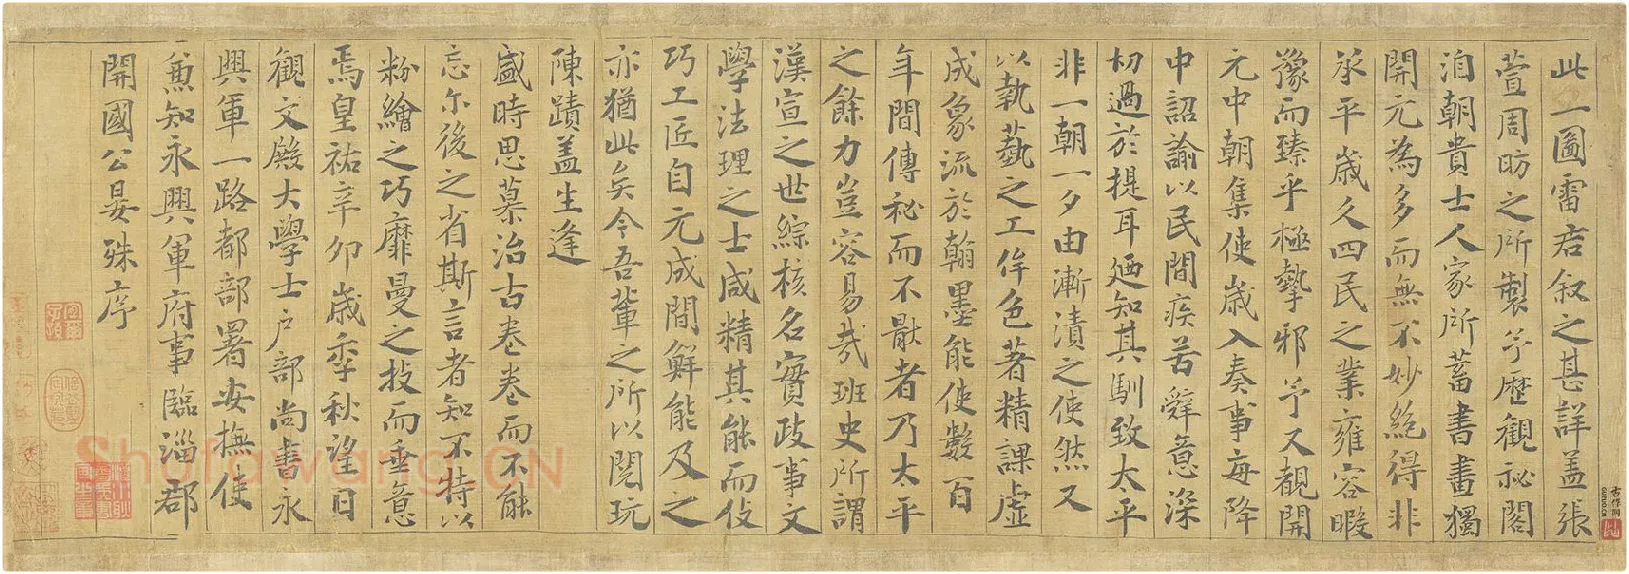 此一圖雷君叙之甚詳蓋張
萱周昉之所製予歷觀祕閣
洎朝貴士人家所蓄書畫獨
開元為多而無不妙絶得非
承平歳久四民之業雍容暇
豫而臻乎極摯邪予又覩開
元中朝集使歳入奏事每降
中詔諭以民間疾苦辭意深
切過於提耳廼知其馴致太平
非一朝一夕由漸漬之使然又
以執藝之工侔色著精課虛
成象流於翰墨能使數百
年間傳祕而不猒者乃太平
之餘力豈容易哉班史所謂
漢宣之世綜核名實政事文
學法理之士咸精其能而伎
巧工匠自元成間鮮能及之
亦猶此矣今吾輩之所以閱玩
陳蹟盖生逢
盛時思慕治古卷卷而不能
忘尓後之省斯言者知不特以
粉繪之巧靡曼之技而垂意
焉皇祐辛卯歳季秋望日
觀文殿大學士戶部尚書永
興軍一路都部署安撫使
兼知永興軍府事臨淄郡
開國公晏殊序
Shufawang.CN